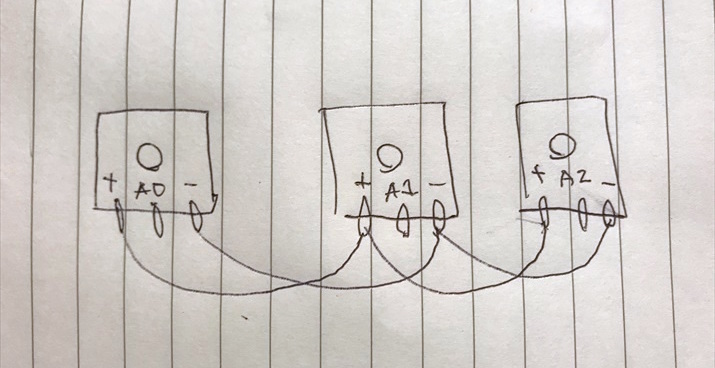 + A0 -
+ A1 -
+ A2 -